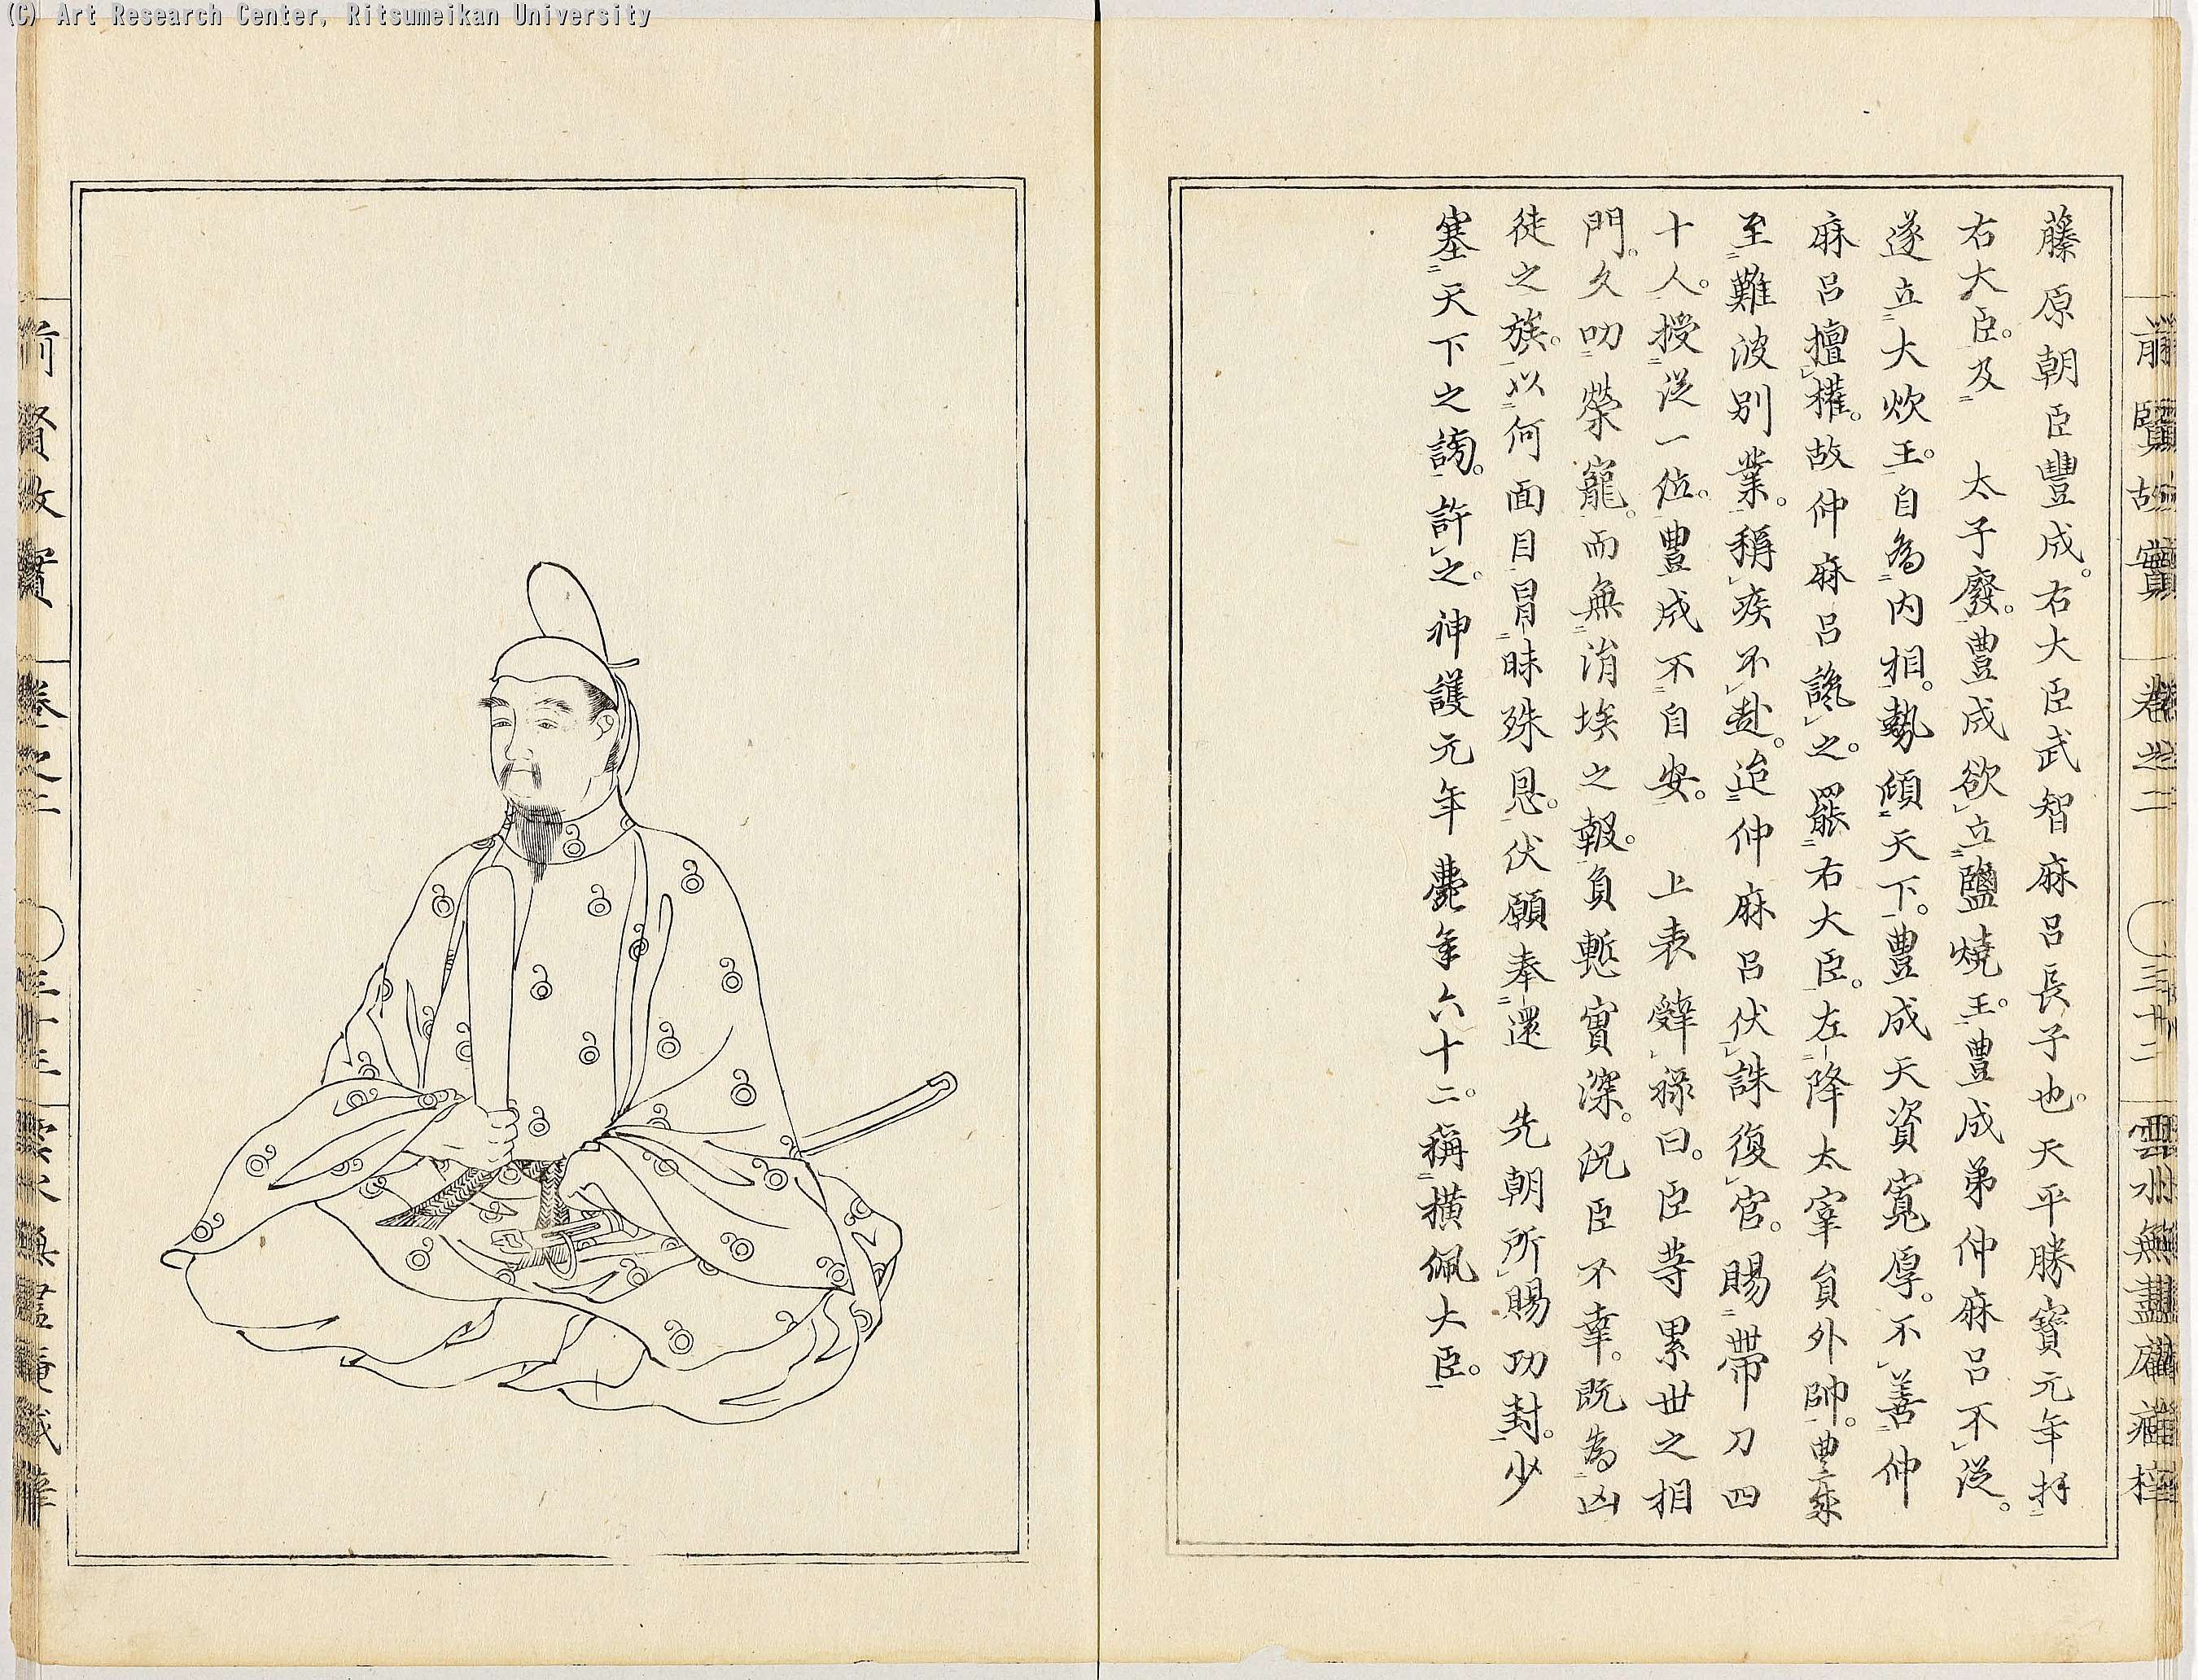 (C) Art Research Center, Ritsumeikan University
前賢故實 卷之二 〇三十二 雲水無盡庵藏梓
藤原朝臣豐成。右大臣武智麻呂長子也。天平勝寶元年拜
右大臣。及 太子廢。豊成欲立鹽燒王。豊成弟仲麻呂不從。
遂立大炊王。自為内相。勢傾天下。豊成天資寬厚。不善仲
麻呂擅權。故仲麻呂讒之。罷右大臣。左降太宰員外帥。豊成
至難波別業。稱疾不赴。迨仲麻呂伏誅復官。賜帶刀四
十人。授從一位。豊成不自安。 上表辭祿曰。臣等累世之相
門。久叨榮寵。而無涓埃之報。負慙實深。況臣不幸。既為凶
徒之族。以何面目冒昧殊恩。伏願奉還 先朝所賜功封。少
塞天下之謗。許之。神護元年薨年六十二。稱横佩大臣。
前賢故實 卷之二 三十三 雲水無盡庵藏梓